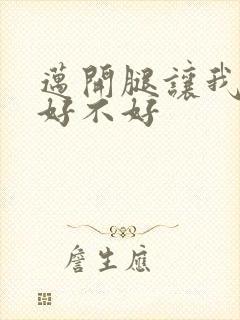 邁開腿讓我
好不好
詹生應